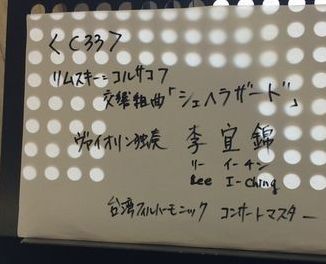 < C33 >
リムスキー=コルサコフ
交響組曲「シェヘラザード」
ヴァイオリン独奏 李 宜 錦
リー イーチン
Lee I-Ching
台湾フィルハーモニック コンサートマスター